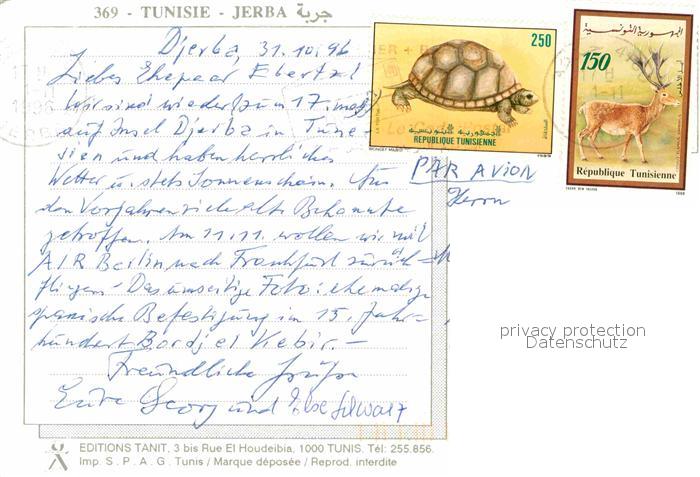 369 - TUNISIE - JERBA جربة
Djerba, 31.10.96
Liebes Ehepaar Ebertz!
Wir sind wieder zum 17. mal
auf Insel Djerba in Tune-
sien und haben herrliches
Wetter u. stets Sonnenschein. Aus
den Vorjahren viele alte Bekannte
getroffen. Am 11.11. wollen wir mit
AIR Berlin nach Frankfurt zurück-
fliegen - Das umseitige Foto: ehemalige
spanische Befestigung im 15. Jahr-
hundert Bordj el Kebir. -
Freundliche Grüße
Eure Georg und Ilse Schwarz
250
الجمهورية التونسية
REPUBLIQUE TUNISIENNE
الجمهورية التونسية
150
République Tunisienne
PAR AVION
Herrn
privacy protection
Datenschutz
EDITIONS TANIT, 3 bis Rue El Houdeibia, 1000 TUNIS. Tél: 255.856.
Imp. S. P. A. G. Tunis / Marque déposée / Reprod. interdite